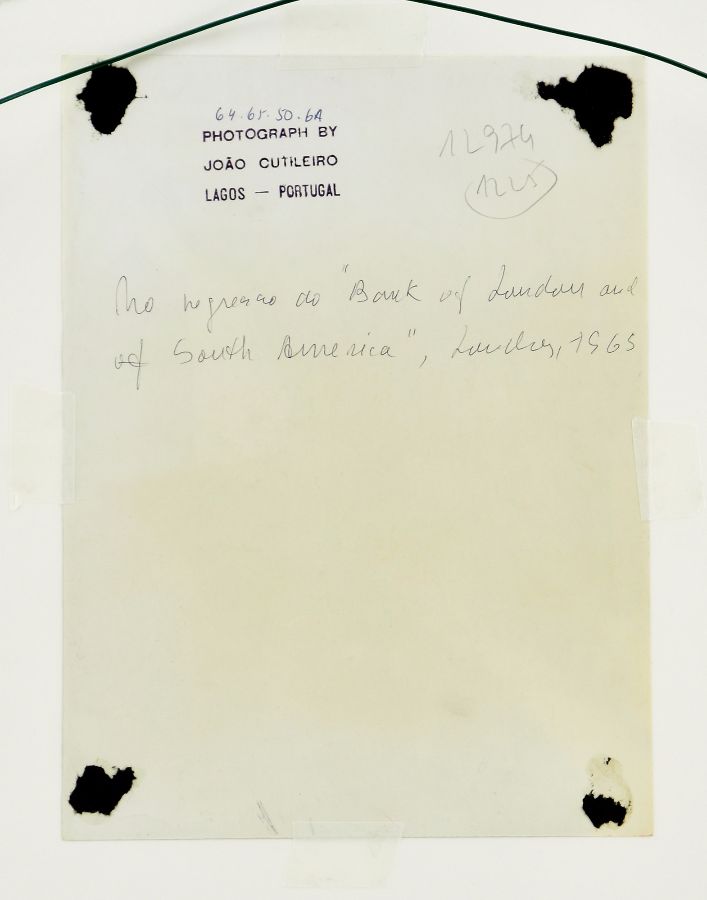 64.65.50.6A
PHOTOGRAPH BY
JOÃO CUTILEIRO
LAGOS — PORTUGAL
12974
1225
No regresso do "Bank of London and
of South America", Londres, 1965